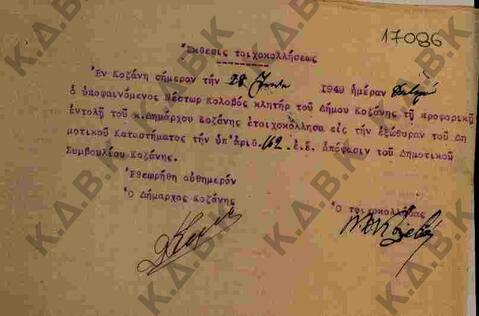 17086
Έκθεσις τοιχοκολλήσεως
Έν Κοζάνη σήμερον τήν 28 1949 ημέραν
ό υποφαινόμενος Νέστωρ Κολοβός κλητήρ τού Δήμου Κοζάνης τή προφορική
έντολή τού κ.Δημάρχου Κοζάνης έτοιχοκόλλησα είς τήν έξώθυραν τού Δη
μοτικού Καταστήματος τήν ύπ'άριθ. 169 έ.έ. άπόφασιν τού Δημοτικού
Συμβουλίου Κοζάνης.
Έθεωρήθη αύθημερόν
Ό Δήμαρχος Κοζάνης
Ό τοιχοκολλήσας
Κ.Δ.Β.Κ